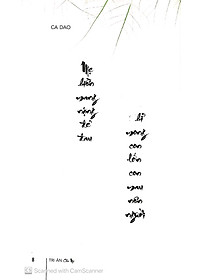 CA DAO
Mẹ
hiền
mang
nặng
đẻ
đau
mong
con
lớn
con
mau
nên
người
TRI ÂN Cha Mẹ
Scanned with CamScanner